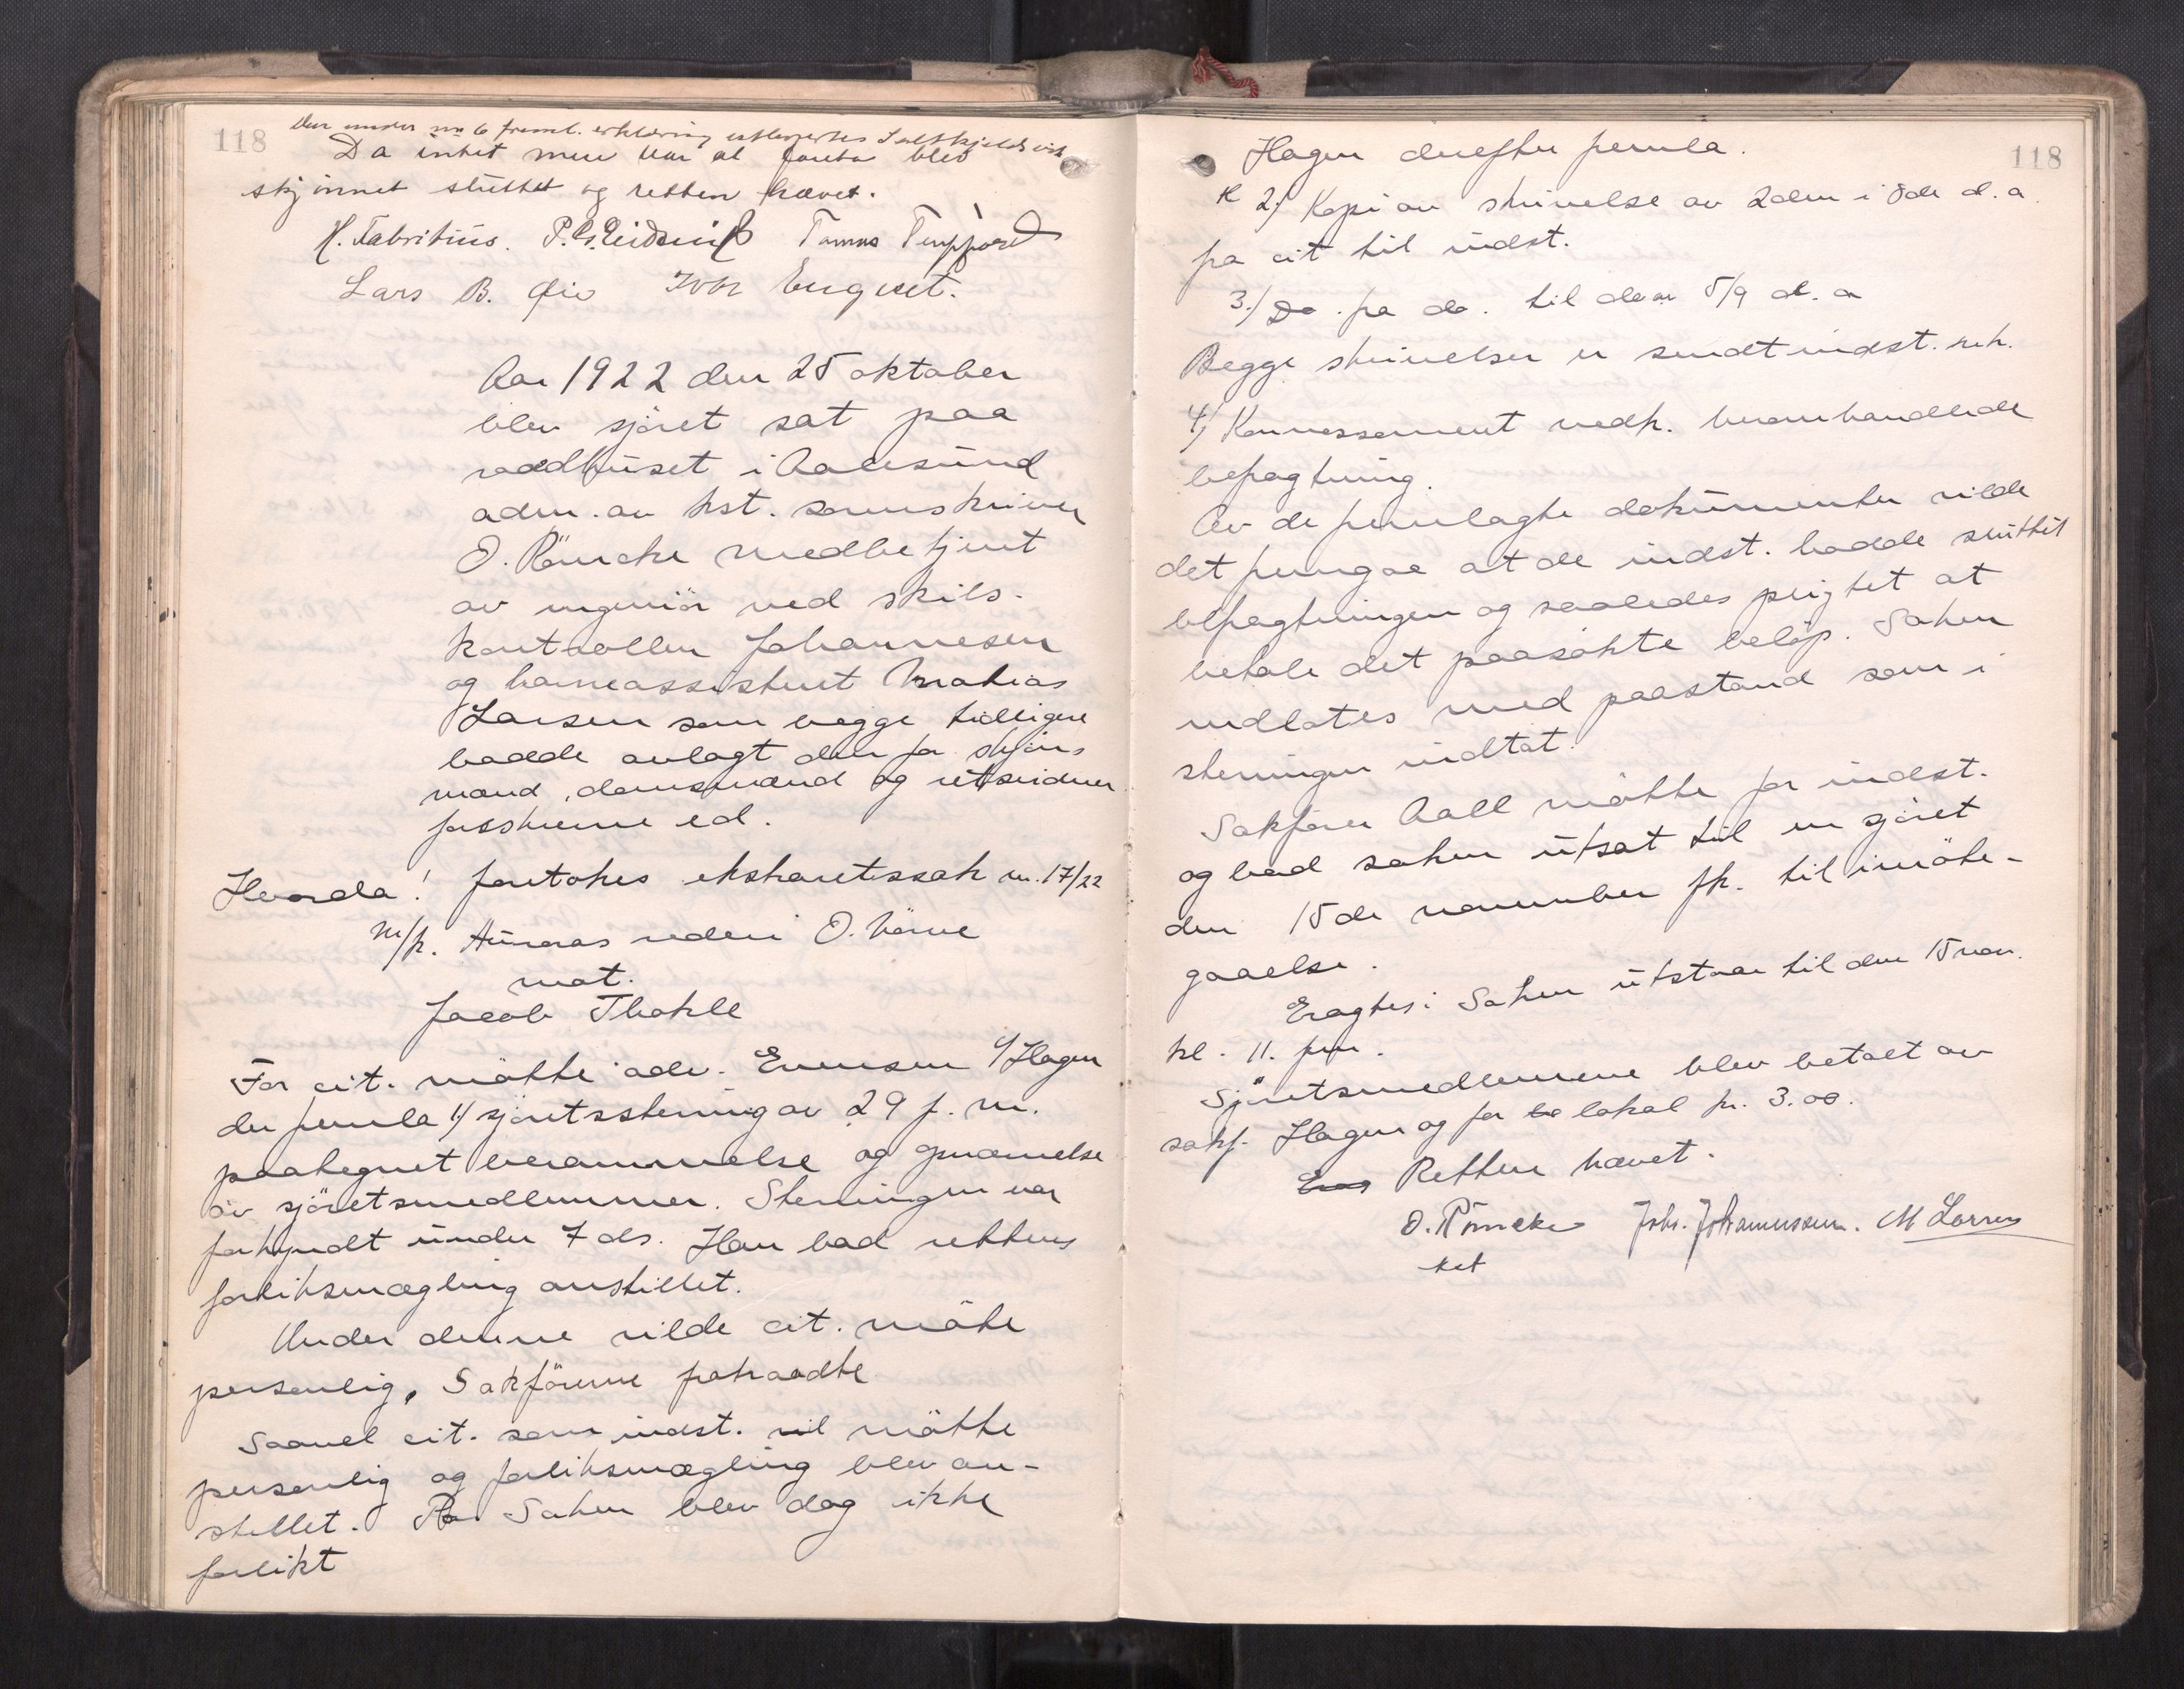 118
Den under no 6 freml. erklæring utlevertes
Da intet mere var at foreta blev
skjønnet sluttet og retten hævet.
H. Fabritius. P. G. Eidsvik Tomas
Lars B. Øie Ivar Engeset.
Aar 1922 den 25 oktober
blev sjöret sat paa
raadhuset i Aalesund
adm. av kst. sorenskriver
O. Röncke medbetjent
av ingeniör ved skibs-
kontrollen Johannesen
og havneassistent Mathias
Larsen som begge tidligere
hadde avlagt den for skjöns
mænd, domsmænd og retsvidner
forskrevne ed.
Hvorda! foretokes ekstraretssak nr. 17/22
m/p. Auroras rederi O. Vörne
mot.
Jacob Thokle
For cit. mötte adv. Evensen v/ Hagen
der fremla 1/ sjöretsstevning av 29 f. m.
paategnet berammelse og opnævnelse
av sjöretsmedlemmer. Stevningen var
forkyndt under 7 ds. Han bad rettens
forliksmægling anstillet.
Under denne vilde cit. möte
personlig. Sakförerne frafraadte
Saavel cit. som indst. mötte
personlig og forliksmægling blev an-
stillet. Saken blev dog ikke
forlikt
118
Hagen derefter fremla.
2/ Kopi av skrivelse av 2den i 8de d. a.
fra cit til indst.
3./ Do. fra do. til dem 5/9 d. a
Begge skrivelser er sendt indst. rek.
4/ Konnossement vedk. heromhandlede
befragtning.
Av de fremlagte dokumenter vilde
det fremgaa at de indst. hadde sluttet
befragtningen og saaledes pligtet at
betale det paasökte belöp. Saken
indlates med paastand som i
stevningen indtat.
Sakförer Aall mötte for indst.
og bad saken utsat til en sjöret
den 15de november fk. til imöte-
gaaelse.
Eragtes: Saken utstaar til den 15 nov.
kl. 11. fm.
Sjöretsmedlemmene blev betalt av
sakf. Hagen og for lokal kr. 3.00.
Retten hævet.
O. Röncke Johs. Johannessen. M Larsen
kst